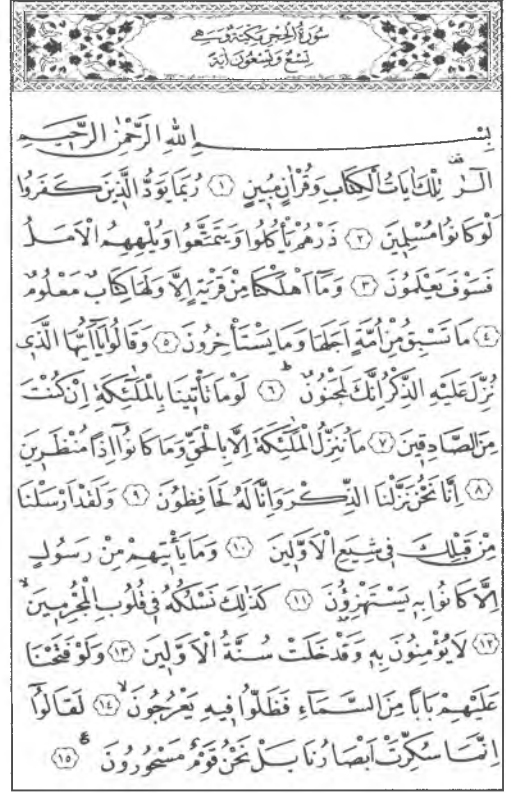 سُورَةُ الْحِجْرِ مَكِّيَّةٌ وَهِيَ
تِسْعٌ وَتِسْعُونَ اٰيَةً
بِسْمِ اللّٰهِ الرَّحْمٰنِ الرَّحٖيمِ
الٓرٰ تِلْكَ اٰيَاتُ الْكِتَابِ وَقُرْاٰنٍ مُبٖينٍ ﴿١﴾ رُبَمَا يَوَدُّ الَّذٖينَ كَفَرُوا
لَوْ كَانُوا مُسْلِمٖينَ ﴿٢﴾ ذَرْهُمْ يَأْكُلُوا وَيَتَمَتَّعُوا وَيُلْهِهِمُ الْاَمَلُ
فَسَوْفَ يَعْلَمُونَ ﴿٣﴾ وَمَٓا اَهْلَكْنَا مِنْ قَرْيَةٍ اِلَّا وَلَهَا كِتَابٌ مَعْلُومٌ
﴿٤﴾ مَا تَسْبِقُ مِنْ اُمَّةٍ اَجَلَهَا وَمَا يَسْتَأْخِرُونَ ﴿٥﴾ وَقَالُوا يَٓا اَيُّهَا الَّذٖى
نُزِّلَ عَلَيْهِ الذِّكْرُ اِنَّكَ لَمَجْنُونٌ ﴿٦﴾ لَوْ مَا تَأْتٖينَا بِالْمَلٰٓئِكَةِ اِنْ كُنْتَ
مِنَ الصَّادِقٖينَ ﴿٧﴾ مَا نُنَزِّلُ الْمَلٰٓئِكَةَ اِلَّا بِالْحَقِّ وَمَا كَانُٓوا اِذًا مُنْظَرٖينَ
﴿٨﴾ اِنَّا نَحْنُ نَزَّلْنَا الذِّكْرَ وَاِنَّا لَهُ لَحَافِظُونَ ﴿٩﴾ وَلَقَدْ اَرْسَلْنَا
مِنْ قَبْلِكَ فٖى شِيَعِ الْاَوَّلٖينَ ﴿١٠﴾ وَمَا يَأْتٖيهِمْ مِنْ رَسُولٍ
اِلَّا كَانُوا بِهٖ يَسْتَهْزِؤُنَ ﴿١١﴾ كَذٰلِكَ نَسْلُكُهُ فٖى قُلُوبِ الْمُجْرِمٖينَ
﴿١٢﴾ لَا يُؤْمِنُونَ بِهٖ وَقَدْ خَلَتْ سُنَّةُ الْاَوَّلٖينَ ﴿١٣﴾ وَلَوْ فَتَحْنَا
عَلَيْهِمْ بَابًا مِنَ السَّمَٓاءِ فَظَلُّوا فٖيهِ يَعْرُجُونَ ﴿١٤﴾ لَقَالُٓوا
اِنَّمَا سُكِّرَتْ اَبْصَارُنَا بَلْ نَحْنُ قَوْمٌ مَسْحُورُونَ ﴿١٥﴾